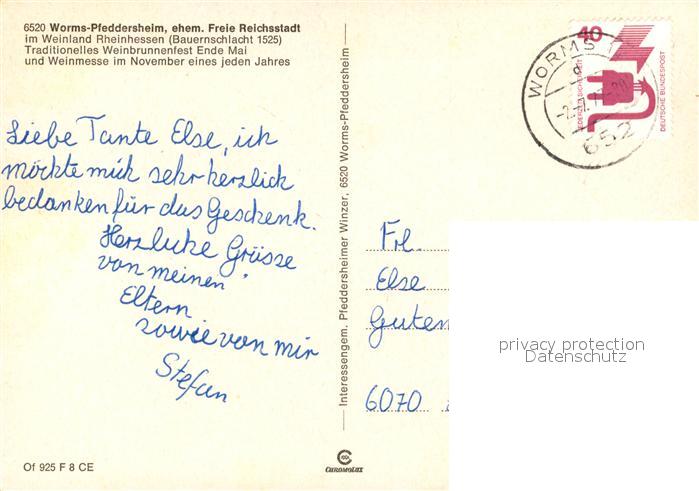 6520 Worms-Pfeddersheim, ehem. Freie Reichsstadt
im Weinland Rheinhessen (Bauernschlacht 1525)
Traditionelles Weinbrunnenfest Ende Mai
und Weinmesse im November eines jeden Jahres
Liebe Tante Else, ich
möchte mich sehr herzlich
bedanken für das Geschenk.
Herzliche Grüsse
von meinen
Eltern
sowie von mir
Stefan
Of 925 F 8 CE
Interessengem. Pfeddersheimer Winzer, 6520 Worms-Pfeddersheim
CHROMOLUX
40
DEUTSCHE BUNDESPOST
WORMS 1
652
Frl.
Else
Guten
6070
privacy protection
Datenschutz